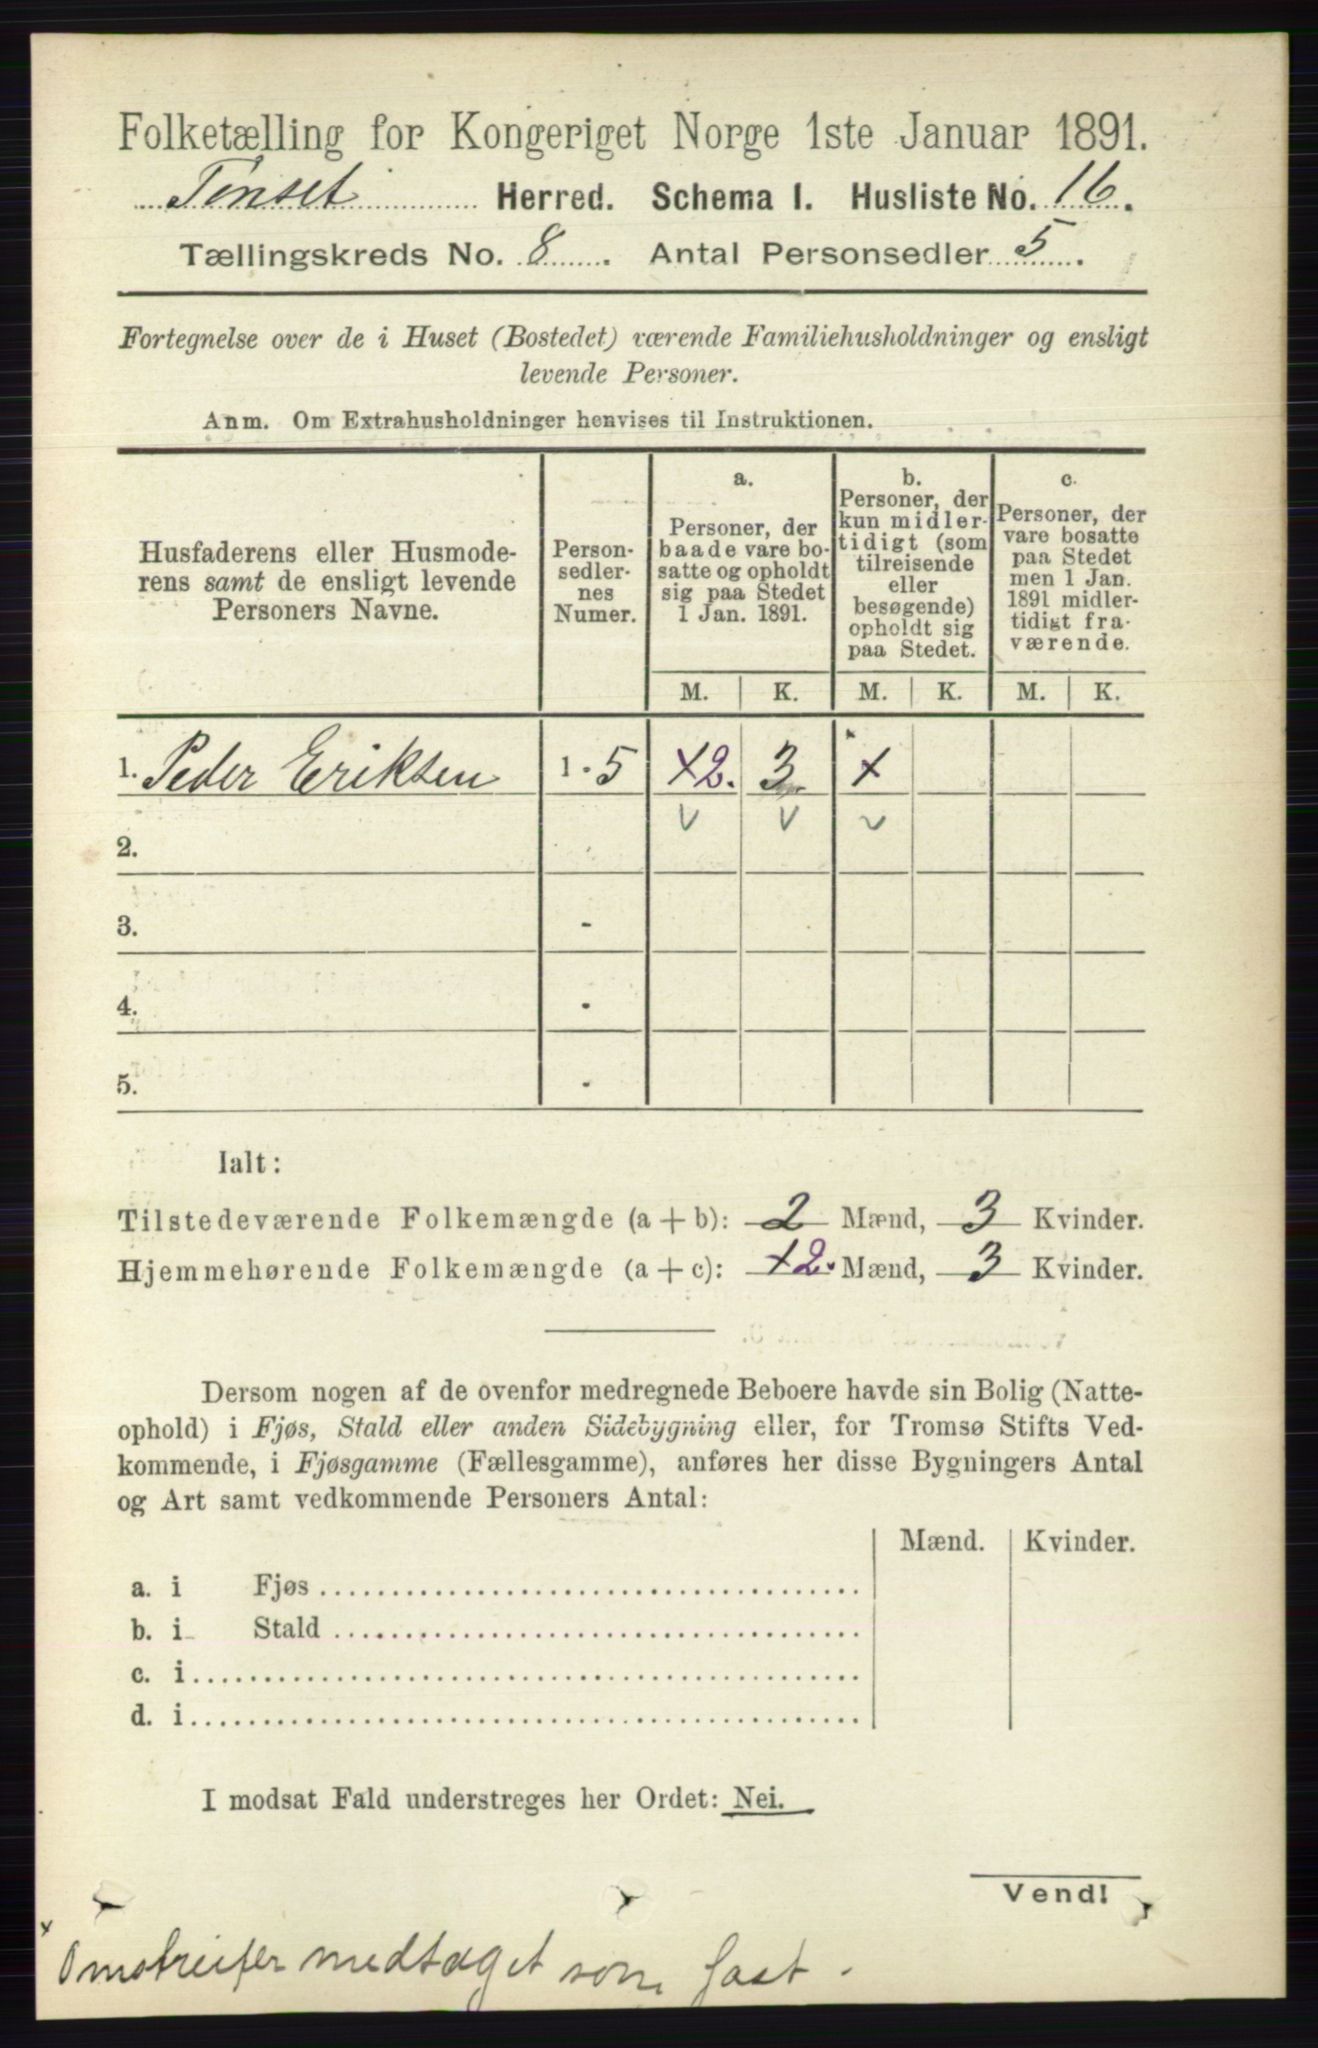 Folketælling for Kongeriget Norge 1ste Januar 1891.
Tønset Herred. Schema I. Husliste No. 16.
Tællingskreds No. 8. Antal Personsedler 5.
Fortegnelse over de i Huset (Bostedet) værende Familiehusholdninger og ensligt
levende Personer.
Anm. Om Extrahusholdninger henvises til Instruktionen.
Husfaderens eller Husmode-
rens samt de ensligt levende
Personers Navne.
Person-
sedler-
nes
Numer.
a.
Personer, der
baade vare bo-
satte og opholdt
sig paa Stedet
1 Jan. 1891.
b.
Personer, der
kun midler-
tidigt (som
tilreisende
eller
besøgende)
opholdt sig
paa Stedet.
c.
Personer, der
vare bosatte
paa Stedet
men 1 Jan.
1891 midler-
tidigt fra-
værende.
M. K. M. K. M. K.
1. Peder Eriksen 1 - 5 x2. 3 x
2.
3. -
4. -
5. -
Ialt:
Tilstedeværende Folkemængde (a + b): 2 Mænd, 3 Kvinder.
Hjemmehørende Folkemængde (a + c): x2. Mænd, 3 Kvinder.
Dersom nogen af de ovenfor medregnede Beboere havde sin Bolig (Natte-
ophold) i Fjøs, Stald eller anden Sidebygning eller, for Tromsø Stifts Ved-
kommende, i Fjøsgamme (Fællesgamme), anføres her disse Bygningers Antal
og Art samt vedkommende Personers Antal:
Mænd. Kvinder.
a. i Fjøs
b. i Stald
c. i
d. i
I modsat Fald understreges her Ordet: Nei.
Vend!
x Omstreifer medtaget som fast.